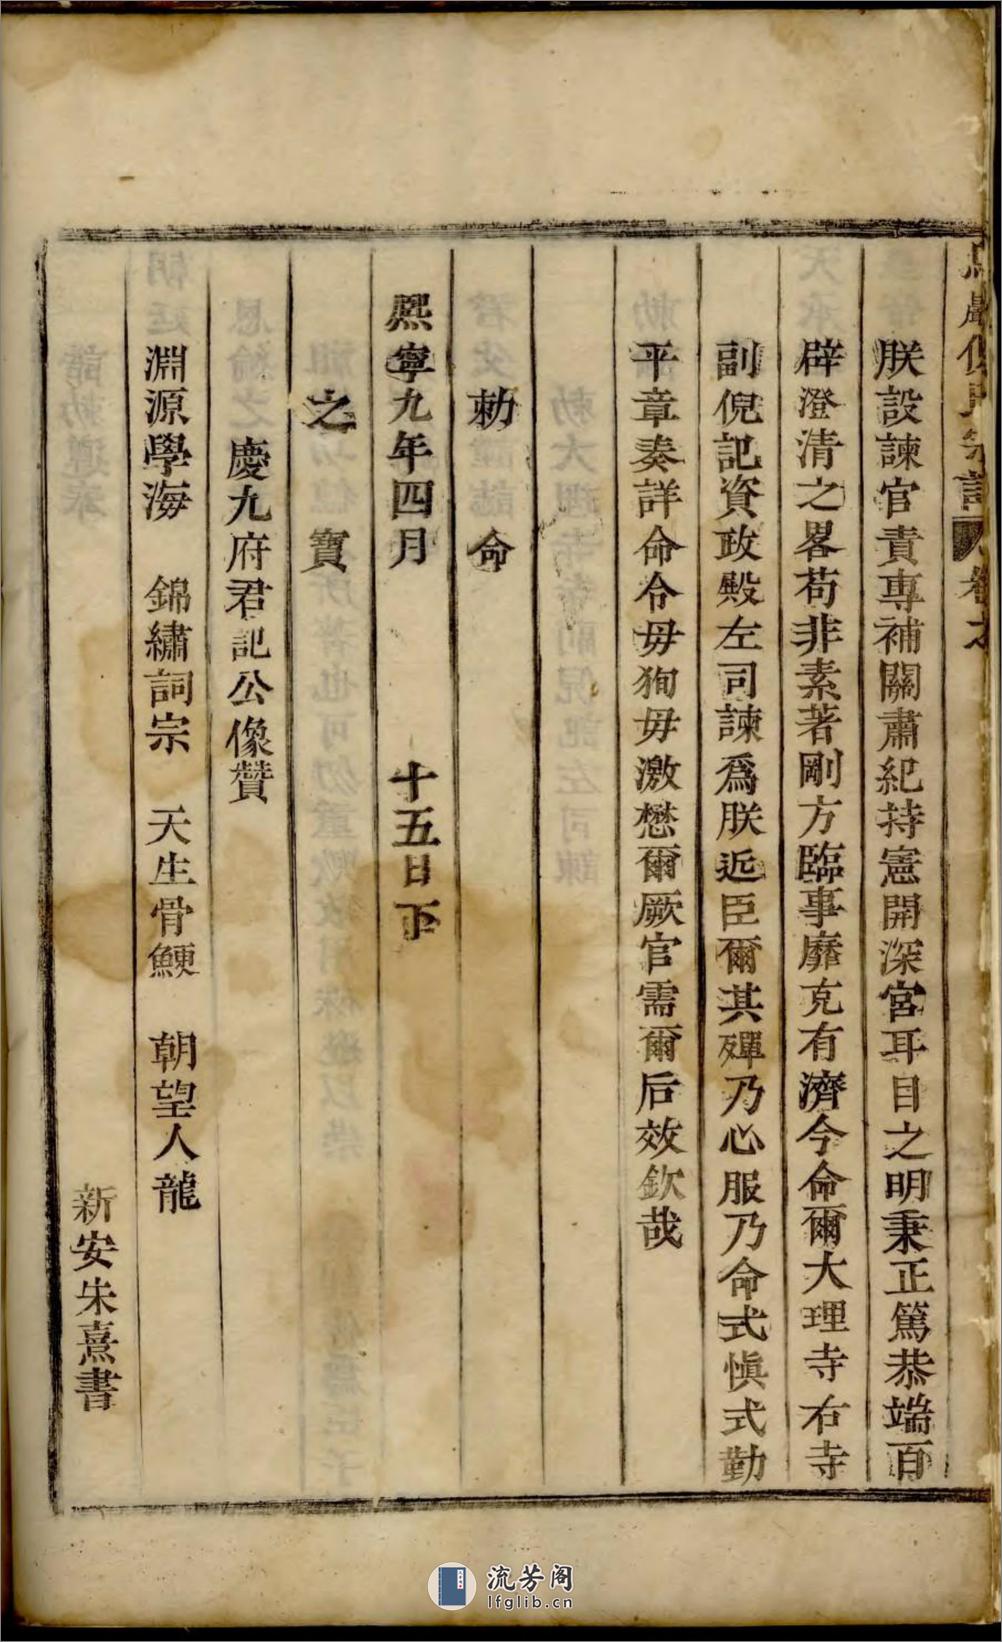 朕設諫官責專補闕肅紀持憲開深宮耳目之明秉正篤恭端百
辟澄清之畧苟非素著剛方臨事靡克有濟今命爾大理寺右寺
副倪記資政殿左司諫爲朕近臣爾其殫乃心服乃命式愼式勤
平章奏詳命令毋狥毋激懋爾厥官需爾后效欽哉
勅命
熈寧九年四月 十五日下
之寶
慶九府君記公像贊
淵源學海 錦繡詞宗 天生骨鯁 朝望人龍
新安朱熹書
流芳阁
lfglib.cn